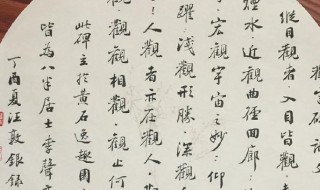 縱目觀者入目皆觀
水近觀曲徑回廊
宏觀宇宙之妙仰
躍淺觀形勝深觀
人觀者亦在觀人
觀觀相觀觀止何
此碑立於黃石逸趣園
皆為八半居士李聲
丁酉夏汪敦銀錄